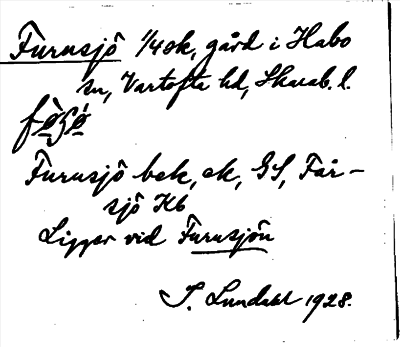 Furusjö 1/4 ek, gård i Habo
sn, Vartofta hd, Skarab. l.
Furusjö bek, ek, GS, Får-
sjö Kb
Ligger vid Furusjön
S. Lundahl 1928.